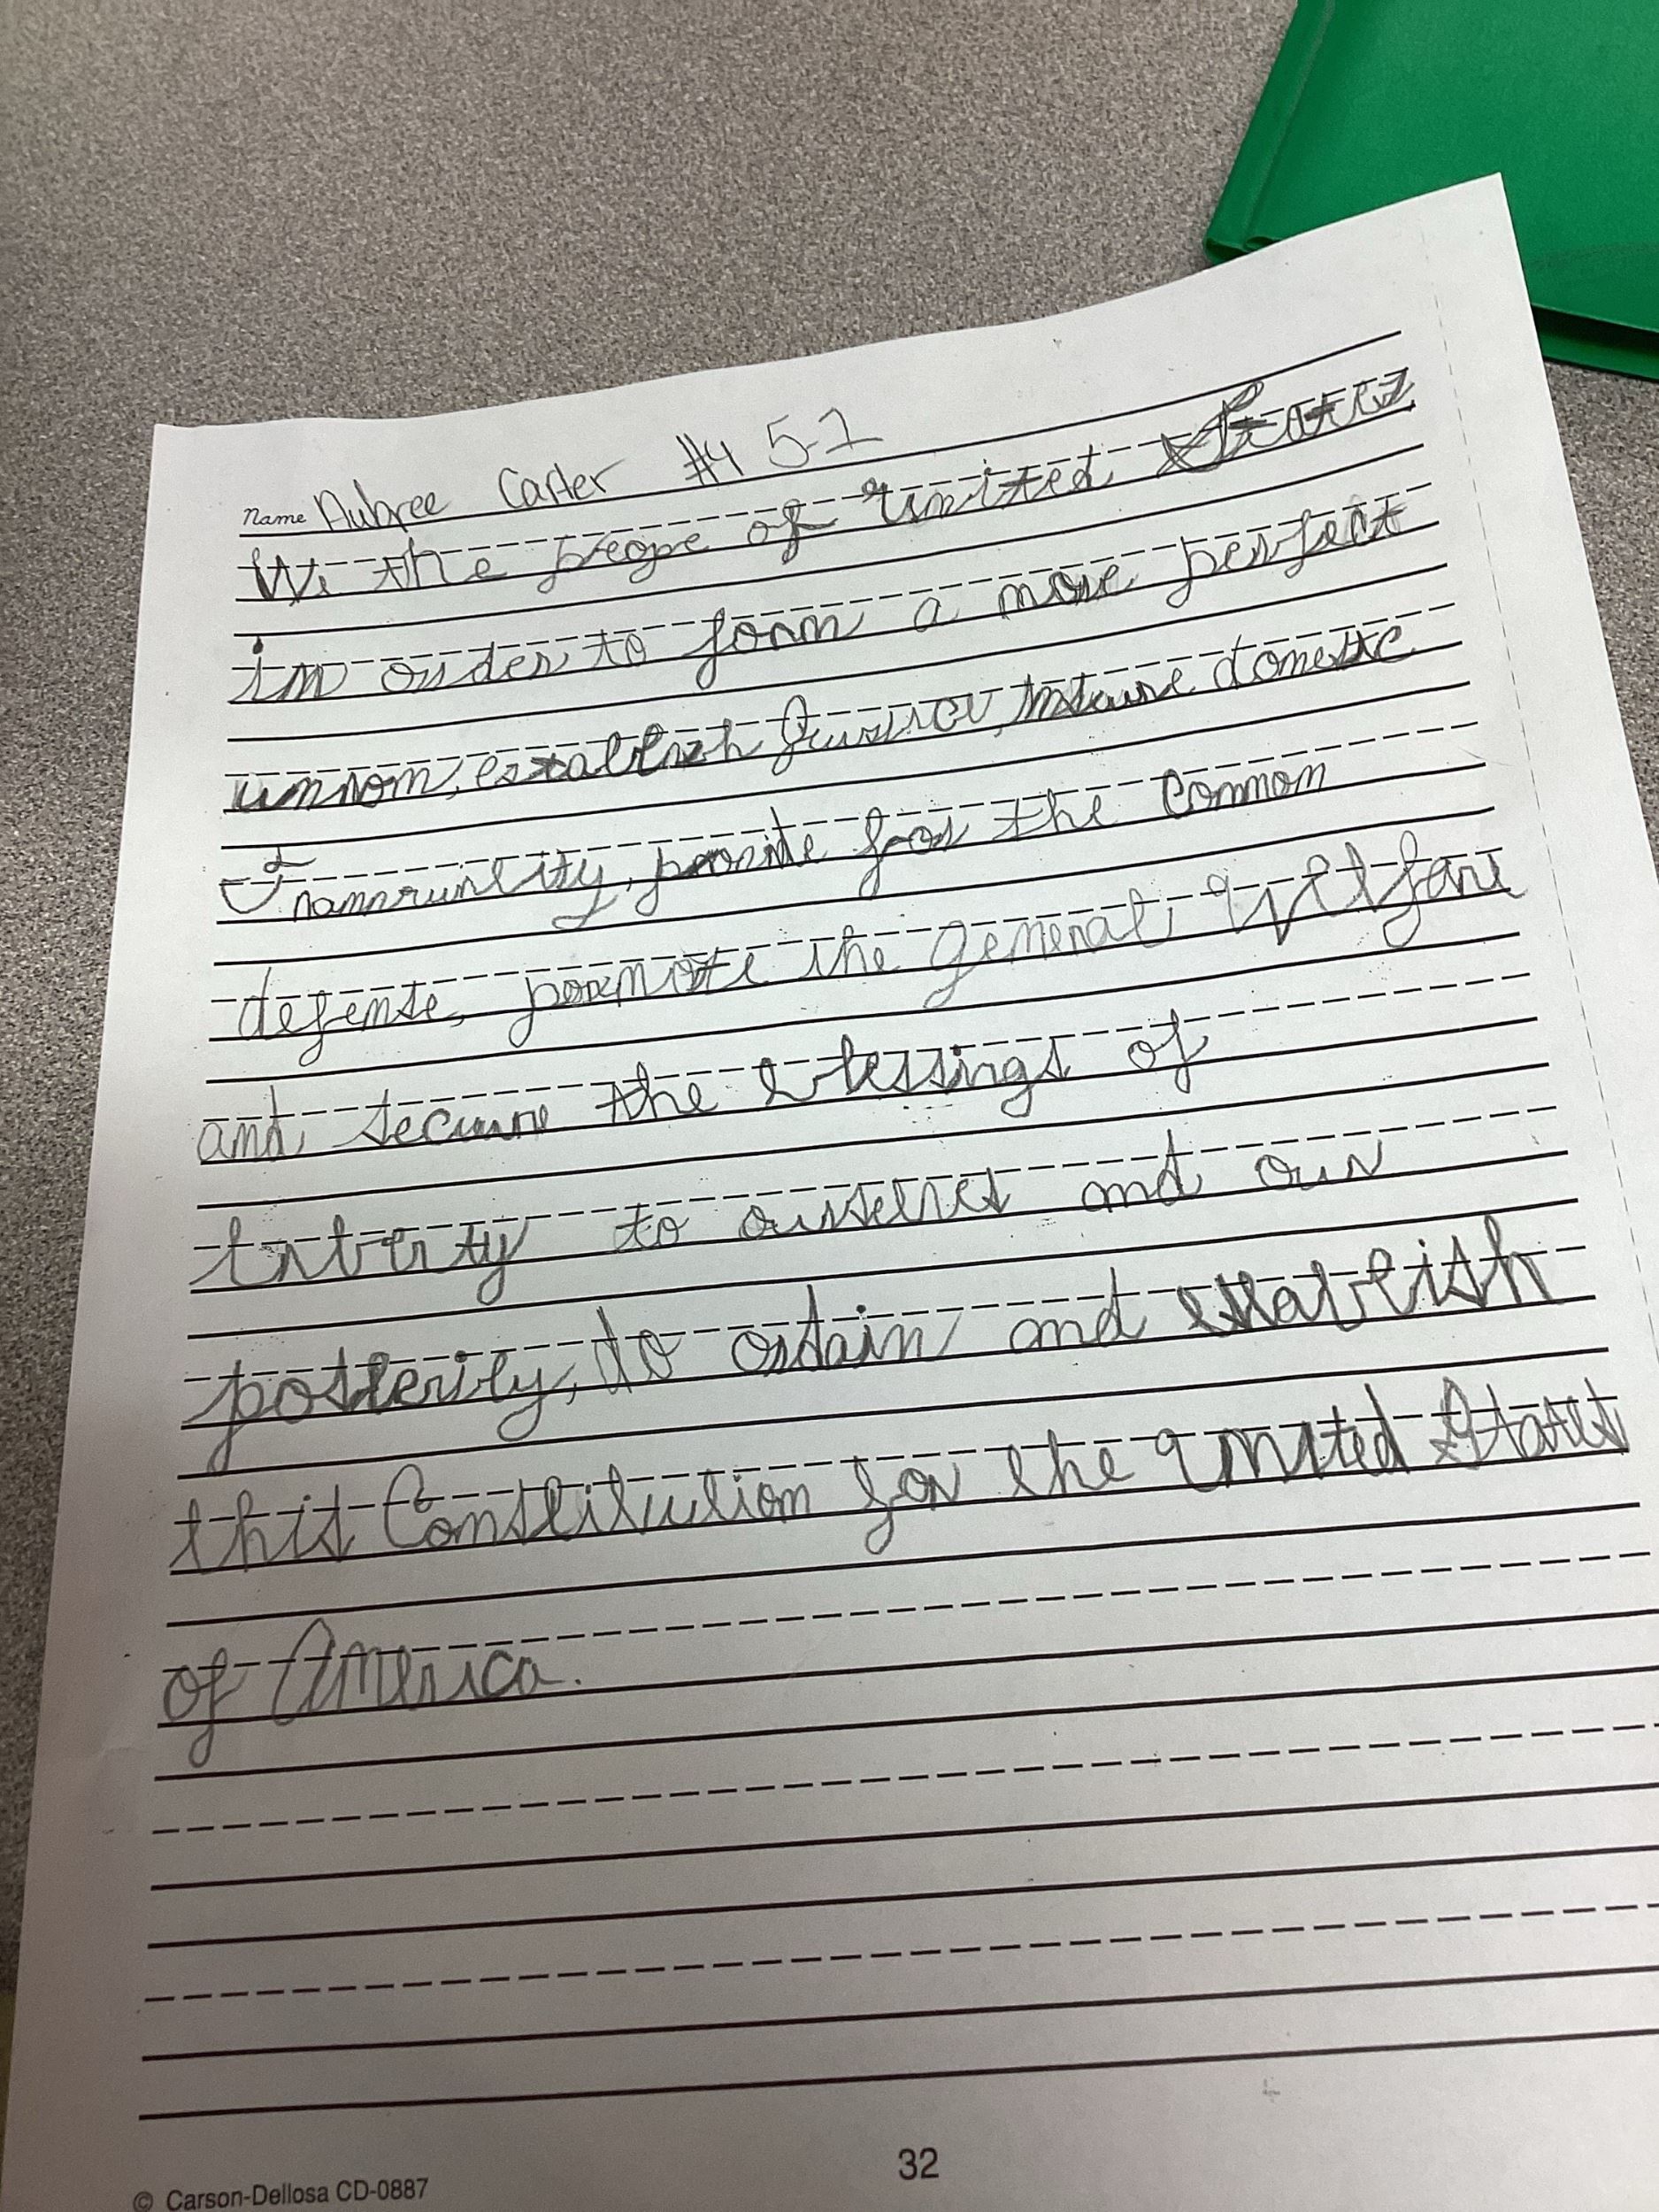 Name Aubree Carter #4 5-1
We the peope of United States
in order to form a more perfect
union, establish Justice, insure domestic
Tranqruility, provide for the common
defense, pormote the general Welfare
and secure the blessings of
to ourselves and our
posterity, do ordain and establish
this Constitution for the United States
of America.
32
© Carson-Dellosa CD-0887